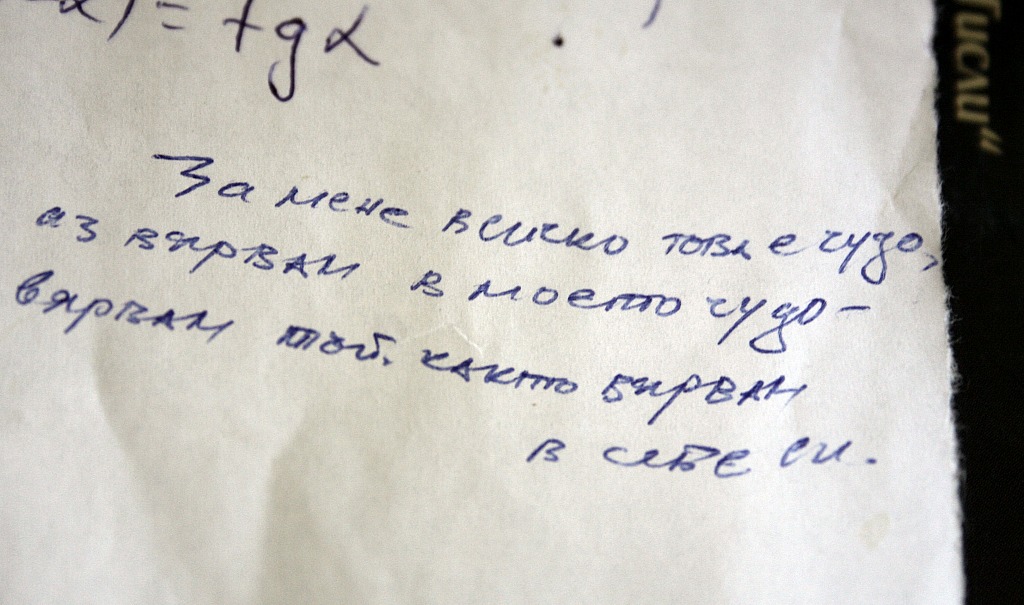 ) = tg α
За мене всичко това е чудо,
аз вярвам в моето чудо –
вярвам тъй, както вярвам
в себе си.
Тисли“